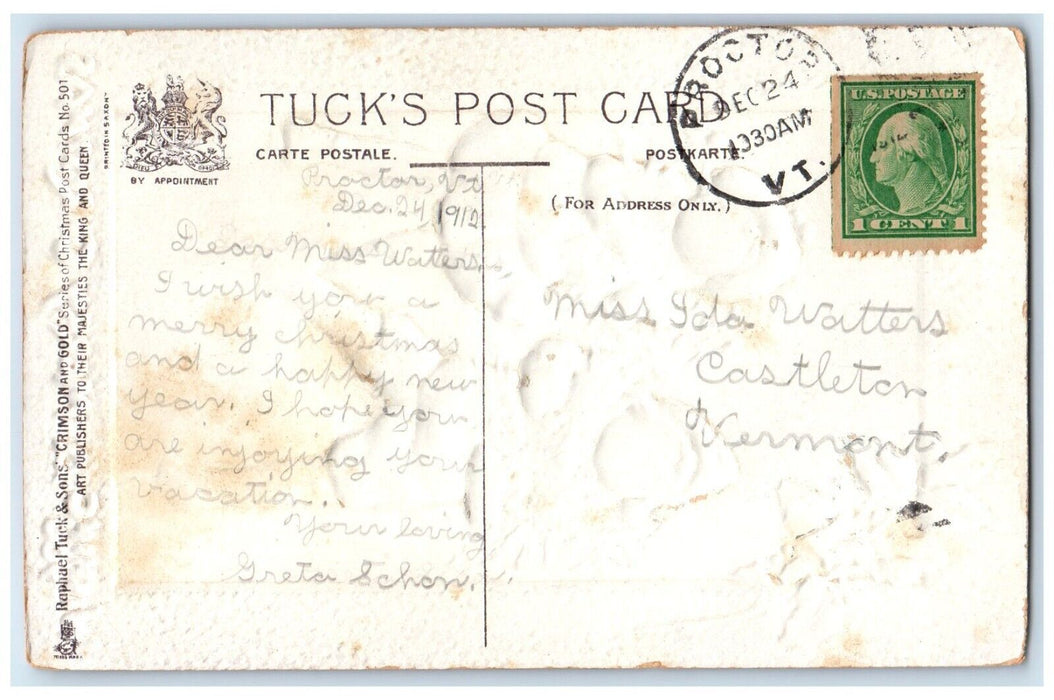 TUCK'S POST CARD
CARTE POSTALE.
POSTKARTE.
BY APPOINTMENT
(FOR ADDRESS ONLY.)
PRINTED IN SAXONY
Raphael Tuck & Sons' "CRIMSON AND GOLD" Series of Christmas Post Cards No. 501
ART PUBLISHERS TO THEIR MAJESTIES THE KING AND QUEEN.
PROCTOR
DEC 24
1030AM
VT.
U.S. POSTAGE
1 CENT 1
Proctor, Vt.
Dec. 24, 1912
Dear Miss Watters,
I wish you a
merry christmas
and a happy new
year. I hope you
are injoying your
vacation.
Your loving
Greta Schon.
Miss Ida Watters
Castleton
Vermont.